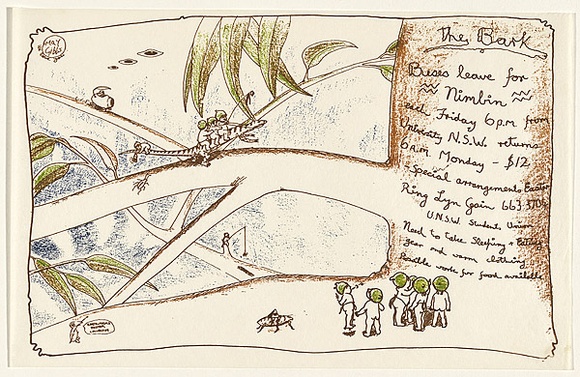 MAY GIBBS
The Bark
Buses leave for
Nimbin
each Friday 6 p.m from
University N.S.W. returns
6 a.m Monday - $12
Special arrangements Easter
Ring Lyn Gain 663 370
U.N.S.W. Students Union
Need to take Sleeping + Eating
gear and warm clothing
Possible work for food available